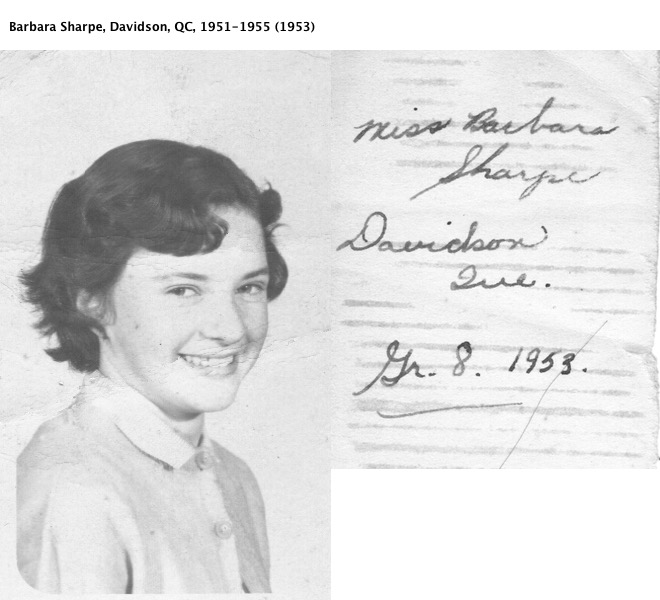 Barbara Sharpe, Davidson, QC, 1951-1955 (1953)
Miss Barbara
Sharpe
Davidson
Que.
Gr. 8. 1953.